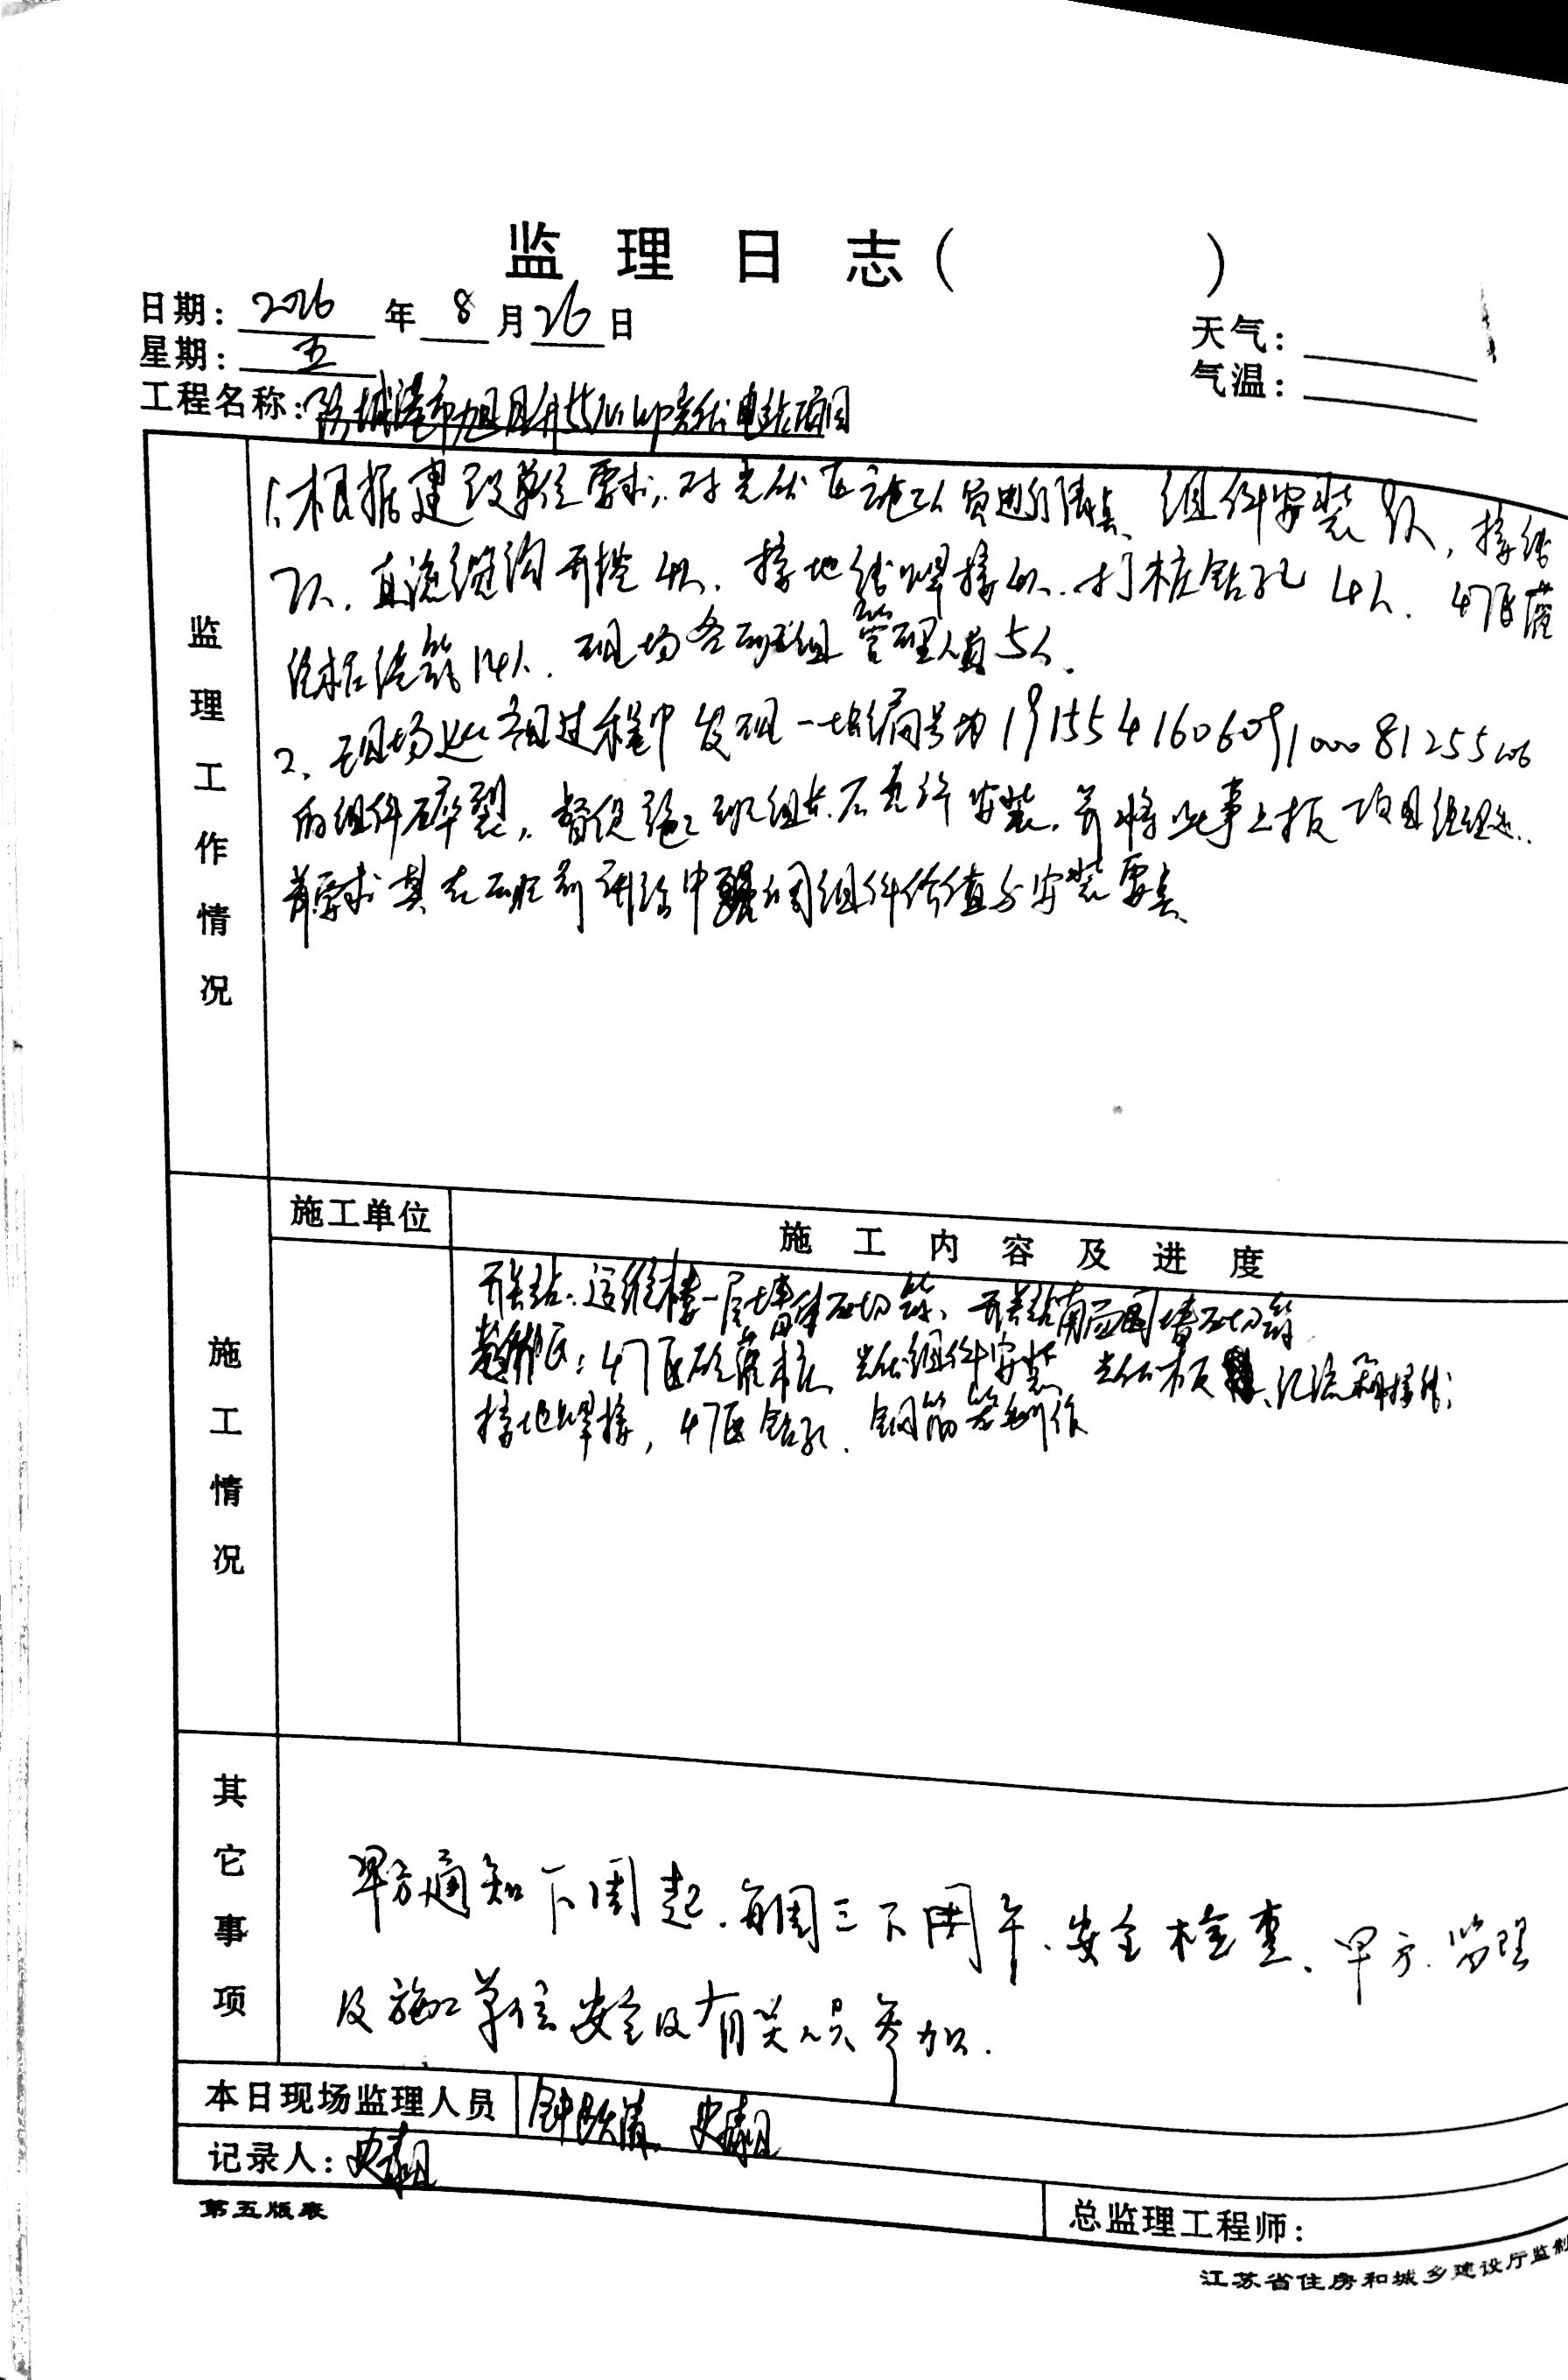 监理日志( )
日期: 2016 年 8 月 26 日
天气:
星期: 五
气温:
工程名称: 防城港市旭日升 光伏电站项目
监理工作情况
1、根据建设单位要求,对光伏区施工人员进行清点、组件安装 人,接线
7人,直流缆沟开挖4人,接地线焊接4人,打桩钻孔4人,47区灌
注桩浇筑14人,现场各班组管理人员5人。
2、现场巡查过程中发现一块编号为
的组件碎裂,督促施工班组长不允许安装,并将此事上报项目经理处,
并要求其在班前研会中强调组件价值与安装要点、
施工单位
施工内容及进度
施工情况
开关站:运维楼一层墙体砌筑、开关站南面围墙砌筑
47区砼灌桩、光伏组件安装、光伏板、汇流箱接线;
接地焊接,47区钻孔、钢筋笼制作
其它事项
甲方通知下周起,每周三下周午、安全检查、甲方、监理
及施工单位安全及有关人员参加.
本日现场监理人员 钟 清、史
记录人: 史
总监理工程师:
第五版表
江苏省住房和城乡建设厅监制